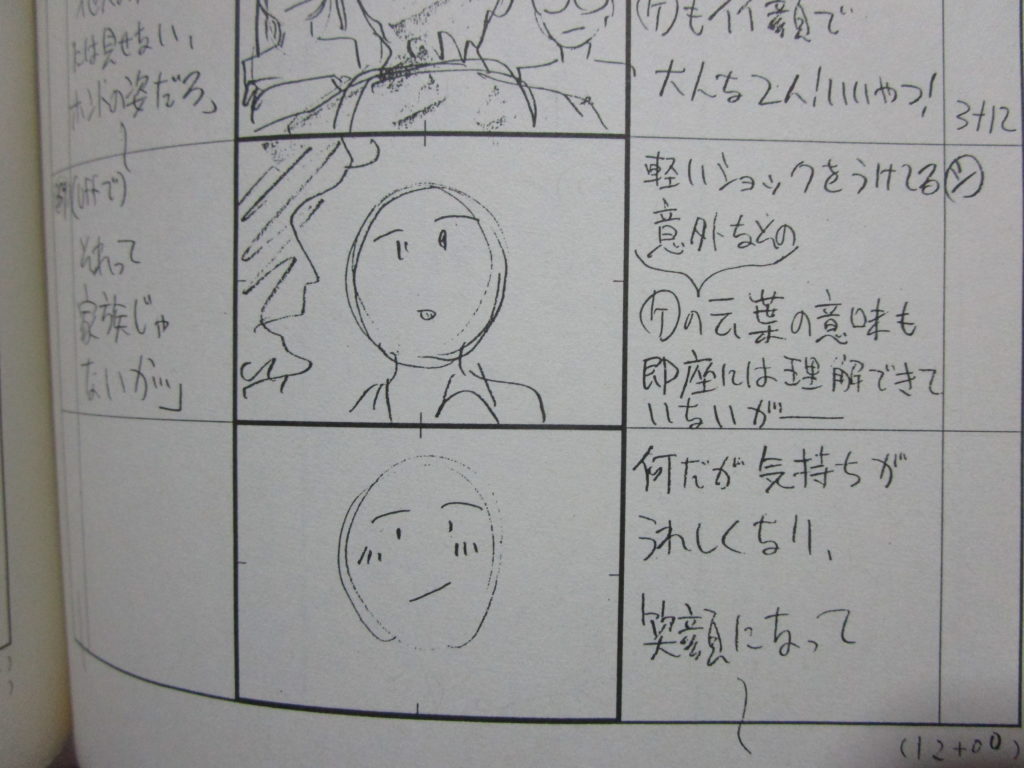 とは見せない、
ホントの姿だろ」
㋘もイイ顔で
大人な2人!いいやつ!
3+12
(offで)
それって
家族じゃ
ないか…」
軽いショックをうけてる㋛
意外なとの
㋘の言葉の意味も
即座には理解できて
いないが――
何だか気持ちが
うれしくなり、
笑顔になって
(12+00)